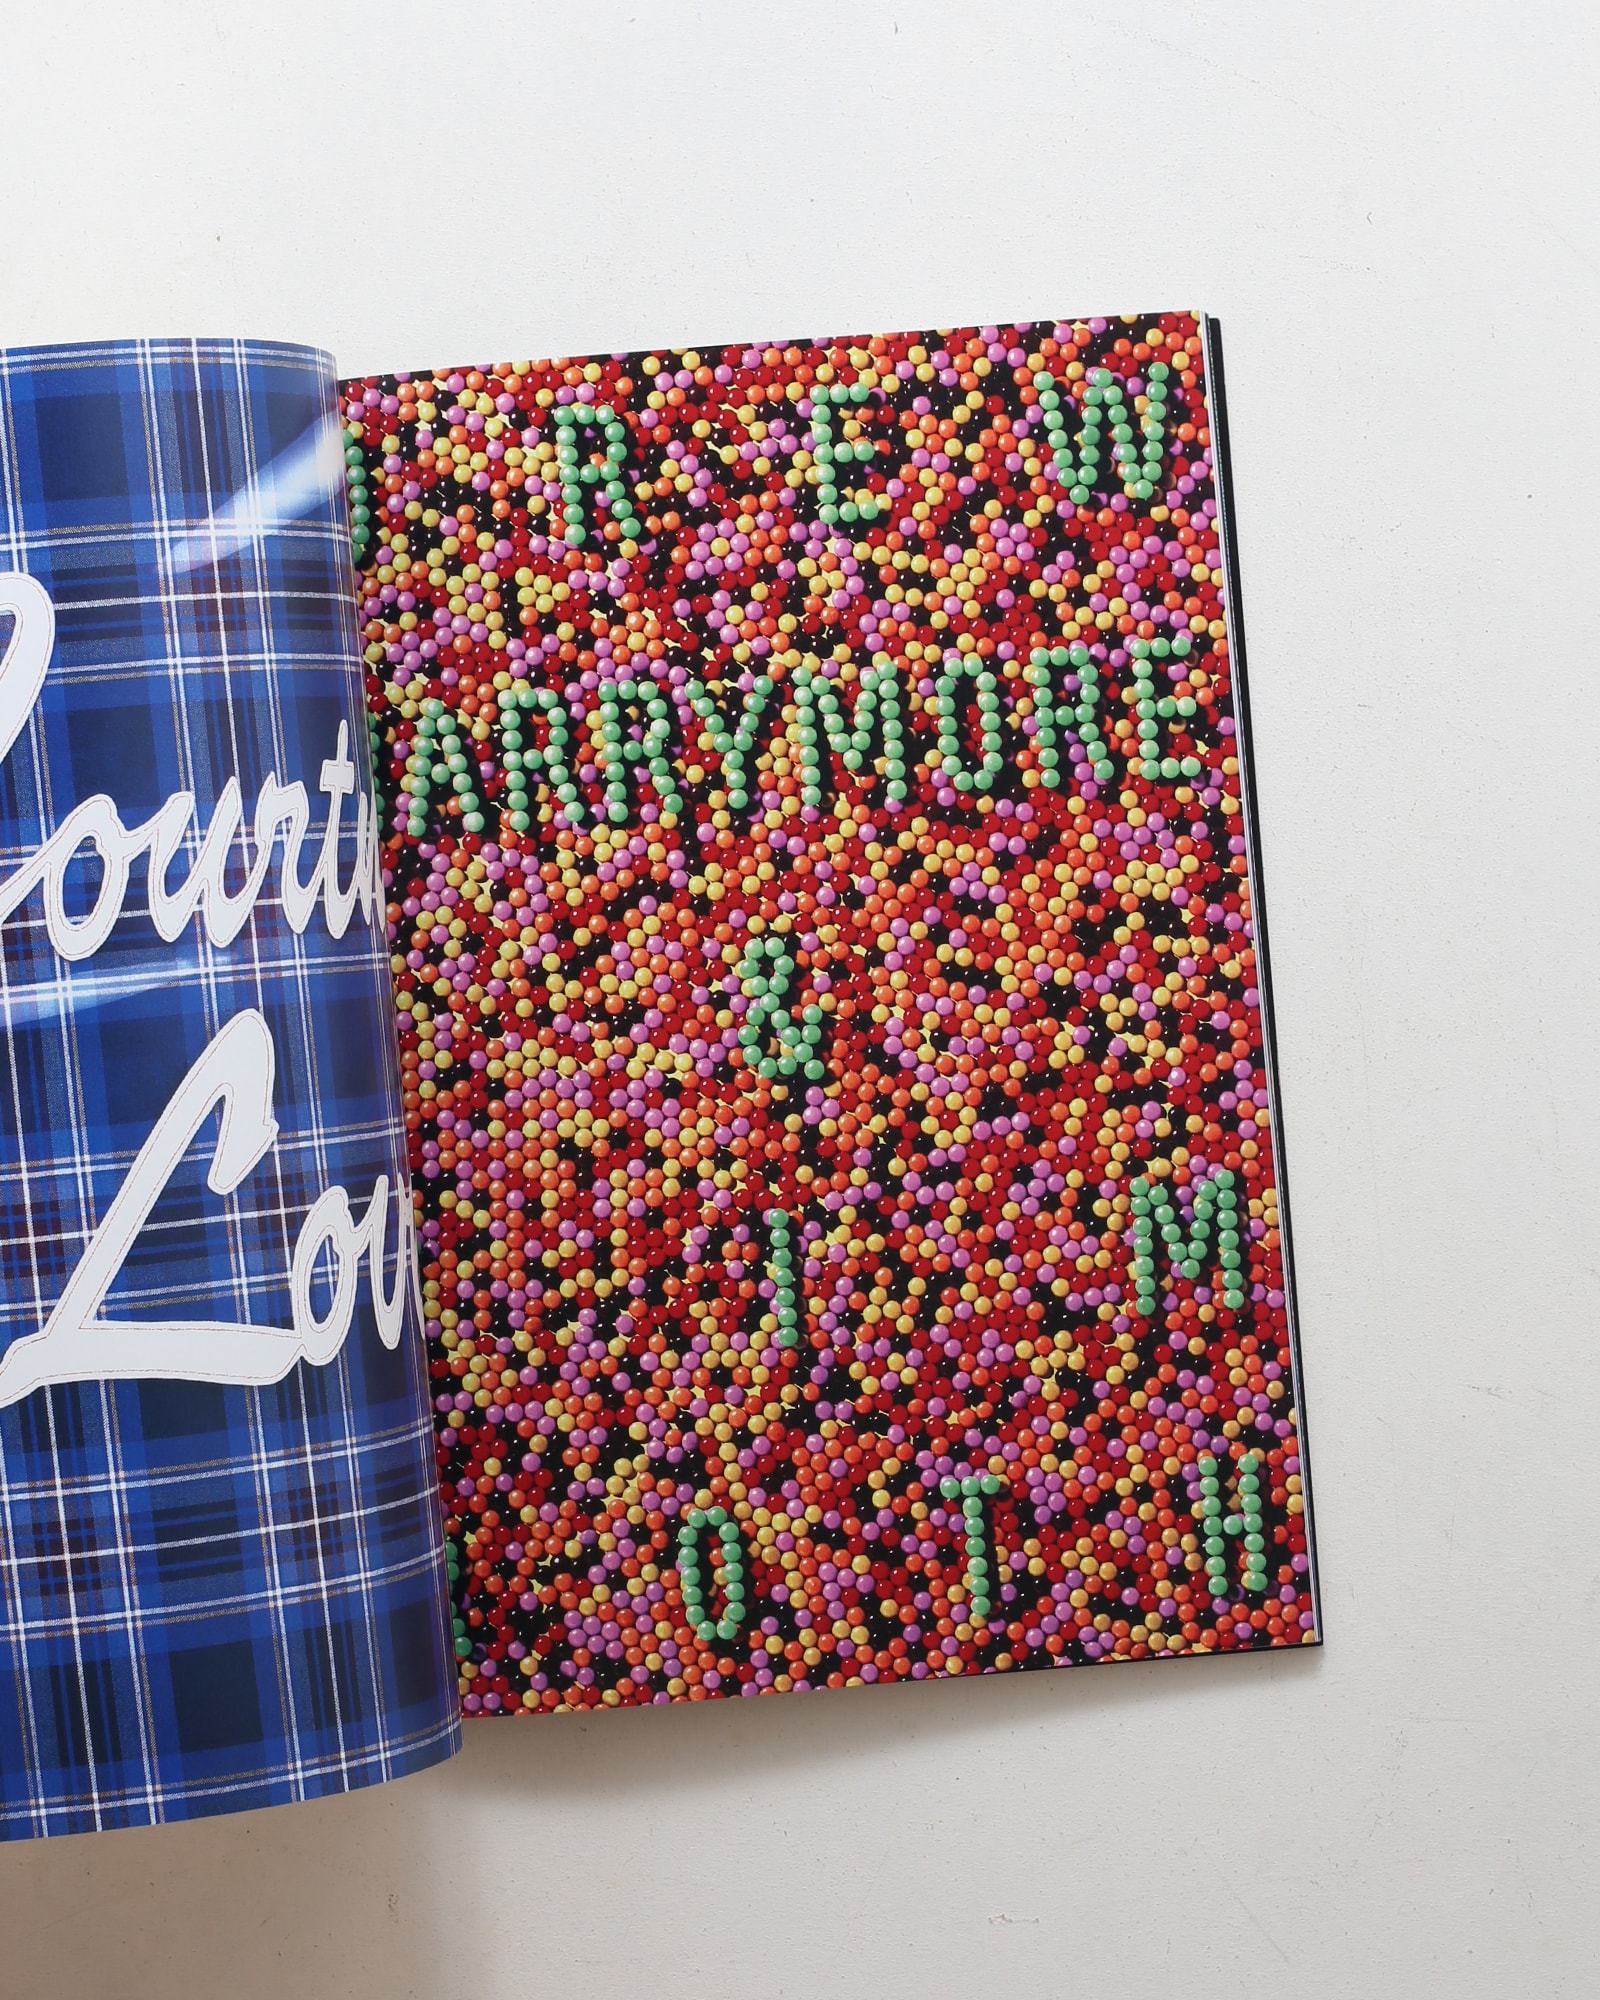 Court
Lov
REW
ARRYMORE
&
IM
OTH